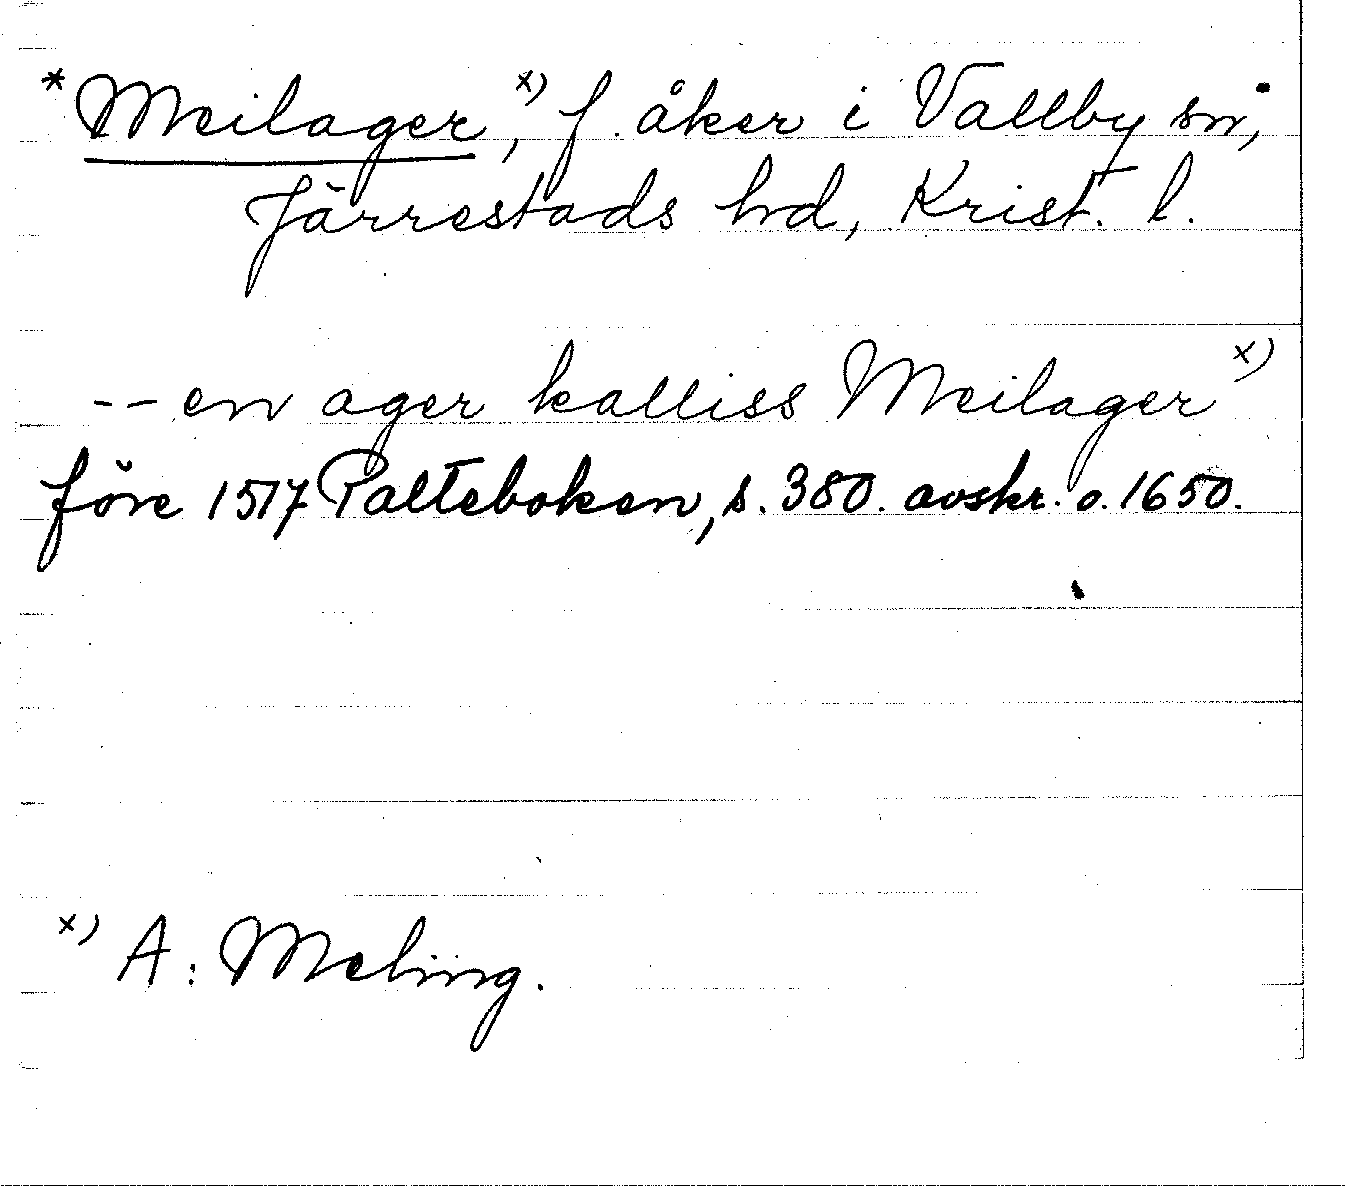 *Meilager,x) f. åker i Vallby sn,
Järrestads hd, Krist. l.
-- en ager kalliss Meilager x)
före 1517 Palteboken, s. 380. avskr. o. 1650.
x) A: Meling.